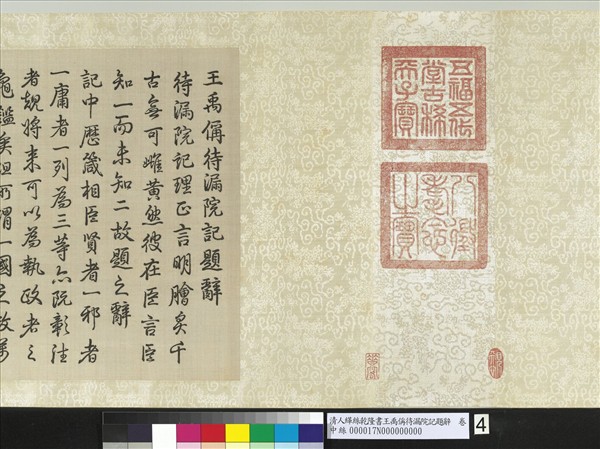 五福五代
堂古稀
天子寶
八徵
耄念
之寶
王禹偁待漏院記題辭
待漏院記理正言明膾炙千
古無可雌黄然彼在臣言臣
知一而未知二故題之辭
記中歷箴相臣賢者一邪者
一庸者一列為三等亦既彰往
者規將来可以為執政者之
龜鑑矣但所謂一國之政萬
清人緙絲乾隆書王禹偁待漏院記題辭 卷
中絲 000017N000000000
4